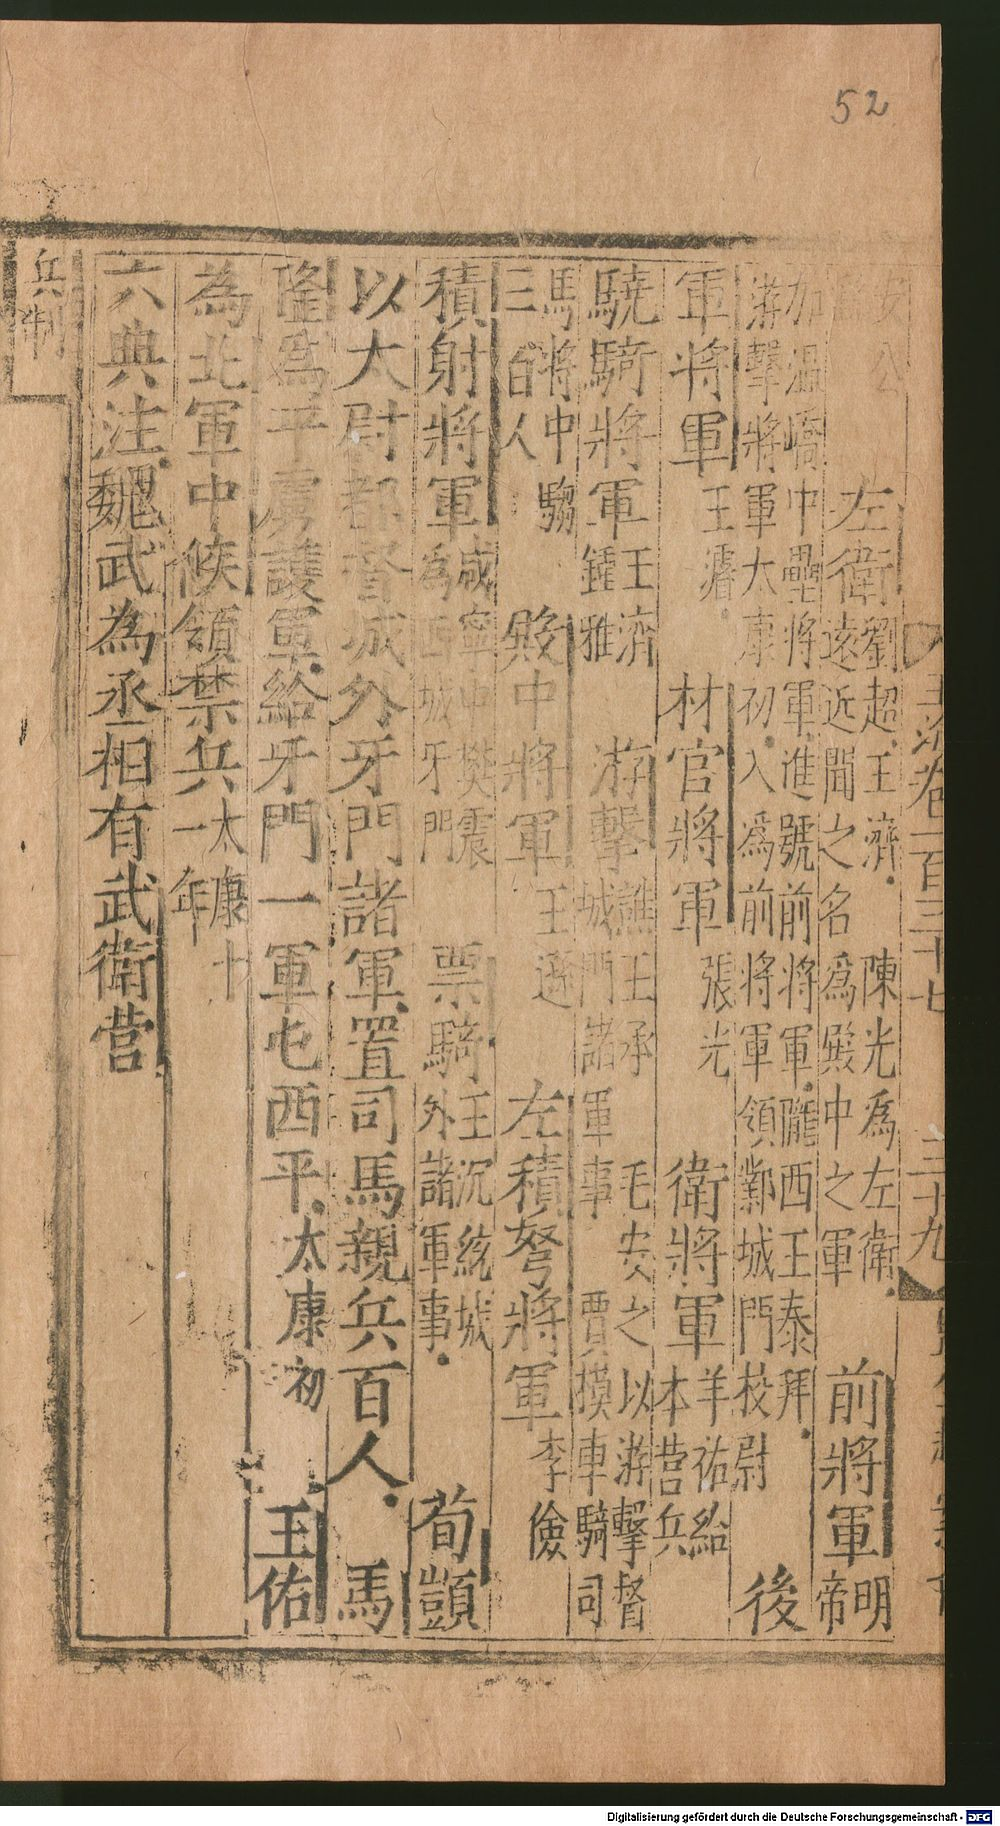 52
玉海卷一百三十七 三十九
左衛 劉超王濟 陳光爲左衛
遠近聞之名爲殿中之軍
前將軍 明
帝
加温嶠中壘將軍進號前將軍隴西王泰拜
游擊將軍太康初入爲前將軍領鄴城門校尉
後
軍將軍 王濬 材官將軍 張光 衛將軍 羊祜給
本營兵
驍騎將軍 王濟
鍾雅
游擊 譙王承 毛安之以游擊督
城門諸軍事 賈模車騎司
馬將中騶
三百人
殿中將軍 王遜 左積弩將軍 李儉
積射將軍 咸寧中樊震
為西城牙門
票騎 王沉統城
外諸軍事
荀顗
以太尉都督城外牙門諸軍置司馬親兵百人 馬
隆爲平虜護軍給牙門一軍屯西平 太康初 王佑
為北軍中候領禁兵 太康十
一年
六典注魏武為丞相有武衛營
兵制
Digitalisierung gefördert durch die Deutsche Forschungsgemeinschaft - DFG